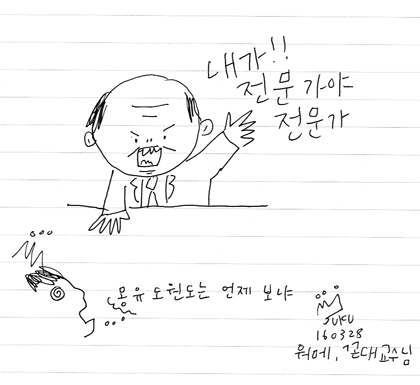 내가!!
전문가야
전문가
몽유도원도는 언제 보나
SUKU
160328
워메, 꼰대교수님